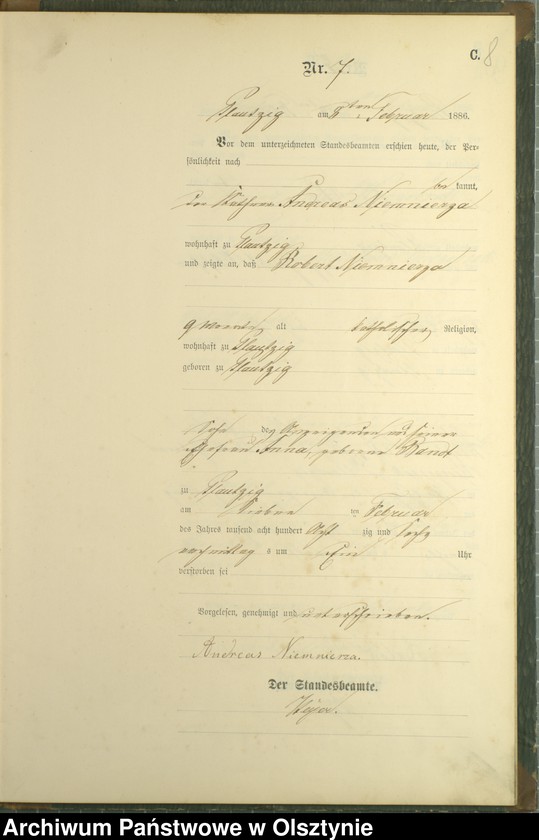 C. 8
Nr. 7.
Plautzig am 8ten Februar 1886.
Vor dem unterzeichneten Standesbeamten erschien heute, der Per-
sönlichkeit nach
be kannt,
der Käthner Andreas Niemnierza
wohnhaft zu Plautzig
und zeigte an, daß Robert Niemnierza
9 Monate alt katholischer Religion,
wohnhaft zu Plautzig
geboren zu Plautzig
Sohn des Anzeigenden und seiner
Ehefrau Anna, geborne
zu Plautzig
am Sieben ten Februar
des Jahres tausend acht hundert Acht zig und sechs
nachmittag s um Ein Uhr
verstorben sei
Vorgelesen, genehmigt und unterschrieben.
Andreas Niemnierza.
Der Standesbeamte.
Archiwum Państwowe w Olsztynie